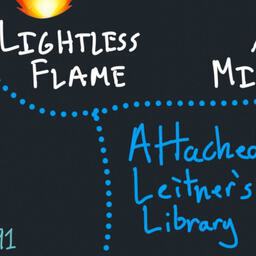 LIGHTLESS
FLAME
MI
Attached
Leitner's
Library
91